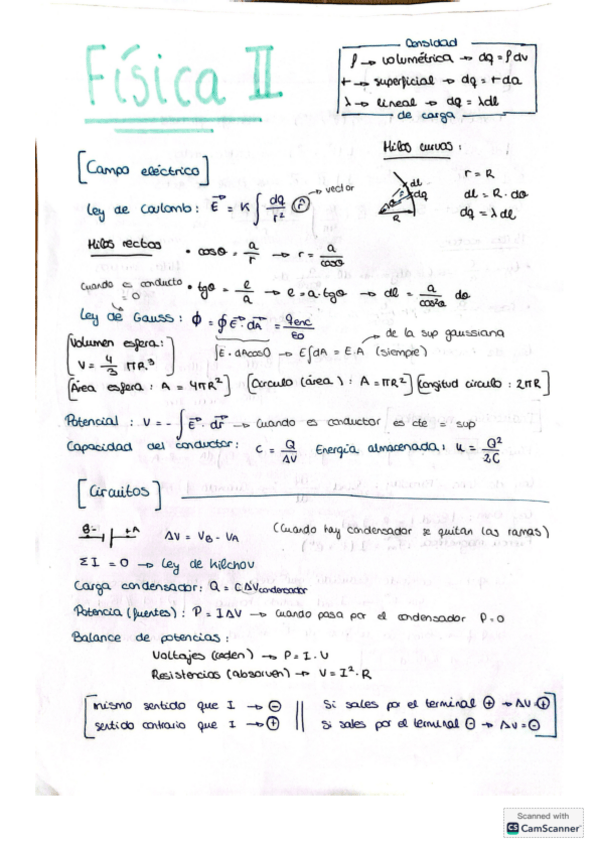 Física II
Densidad
ρ → volumétrica → dq = ρdv
σ → superficial → dq = σda
λ → lineal → dq = λdl
de carga
[Campo eléctrico]
Hilos curvos:
dl
dq
R
r = R
dl = R·dθ
dq = λdl
Ley de Coulomb: E = K ∫ dq/r² r̂ → vector
Hilos rectos • cosθ = a/r → r = a/cosθ
• tgθ = e/a → e = a·tgθ → dl = a/cos²θ dθ
Cuando es conducto = 0
Ley de Gauss: Φ = ∮E·dA = qenc/εo
→ de la sup gaussiana
∫E·dAcos0 → E∫dA = E·A (siempre)
[Volumen esfera: V = 4/3 πR³]
[Área esfera: A = 4πR²] [Círculo (área): A = πR²] [Longitud círculo: 2πR]
Potencial: V = - ∫E·dr → Cuando es conductor es cte = sup
Capacidad del conductor: C = Q/ΔV Energía almacenada: U = Q²/2C
[Circuitos]
B- +A ΔV = VB - VA (Cuando hay condensador se quitan las ramas)
ΣI = 0 → Ley de Kilchov
Carga condensador: Q = CΔVcondensador
Potencia (fuentes): P = IΔV → cuando pasa por el condensador P=0
Balance de potencias:
Voltajes (ceden) → P = I·V
Resistencias (absorven) → V = I²·R
mismo sentido que I → ⊖ || Si sales por el terminal ⊕ → ΔV=⊕
sentido contrario que I → ⊕ || Si sales por el terminal ⊖ → ΔV=⊖
Scanned with
CS CamScanner